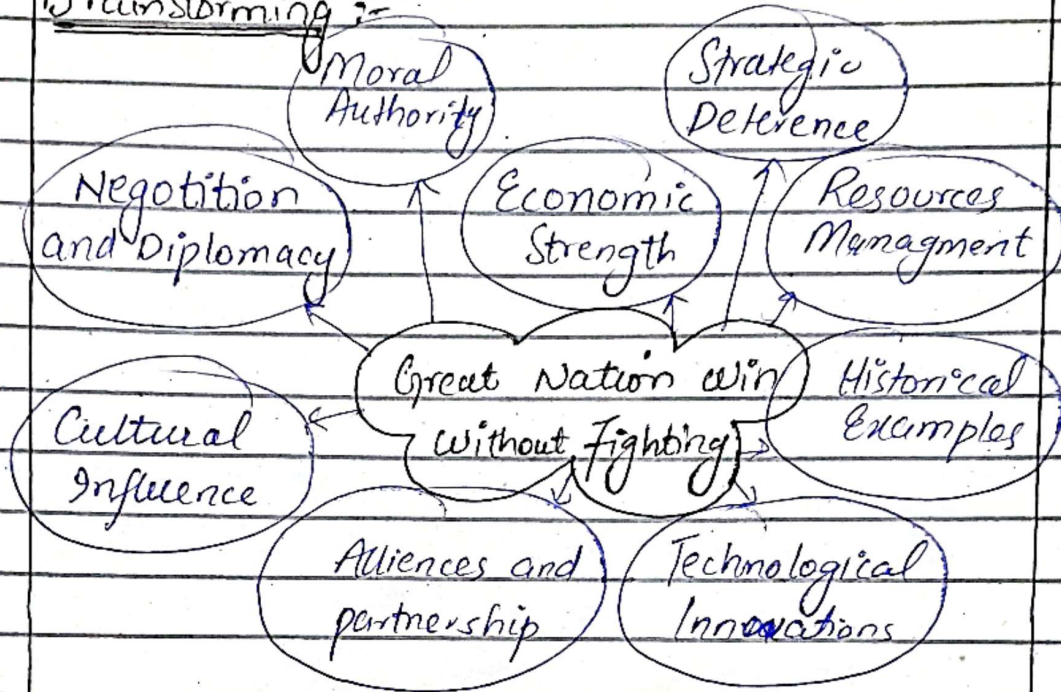 Brainstorming :-
Moral
Authority
Strategic
Deterence
Negotition
and Diplomacy
Economic
Strength
Resources
Managment
Great Nation win
without Fighting
Historical
Examples
Cultural
Influence
Alliences and
partnership
Technological
Innovations